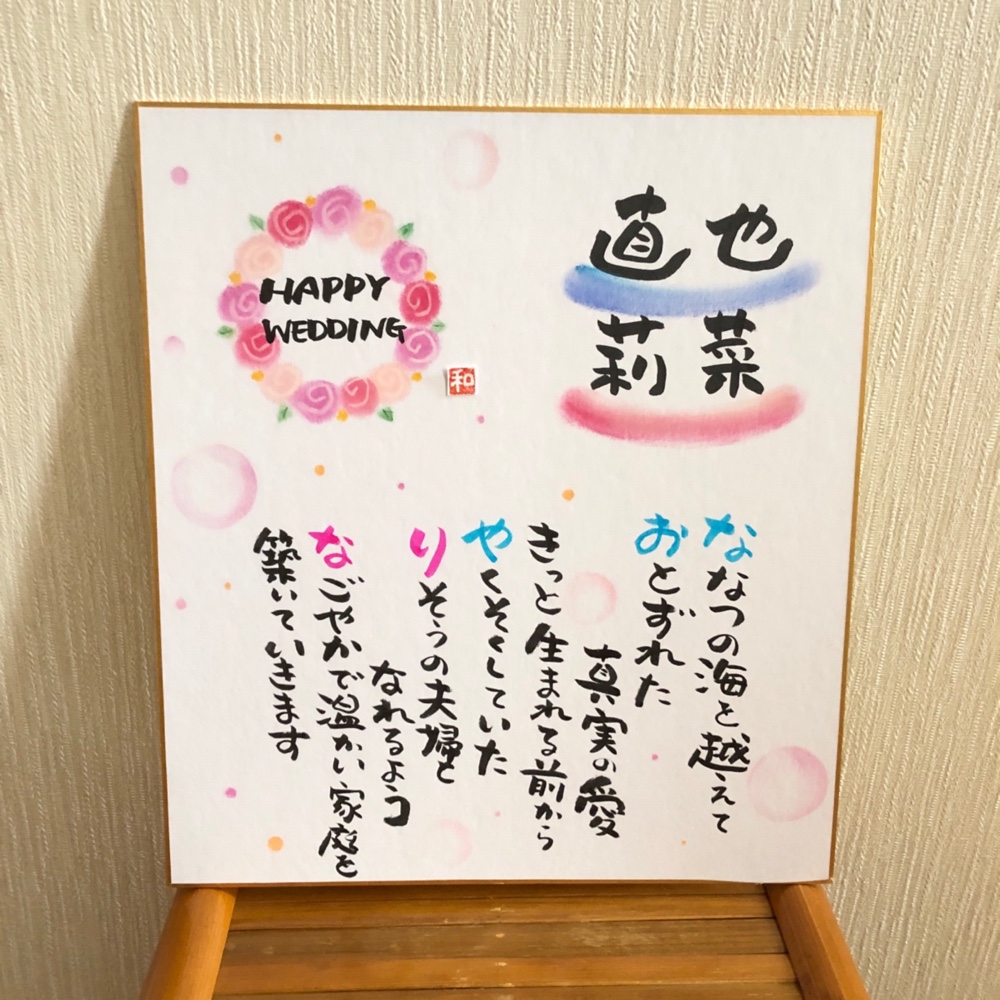 直也
莉菜
HAPPY
WEDDING
和
ななつの海を越えて
おとずれた
真実の愛
きっと生まれる前から
やくそくしていた
りそうの夫婦と
なれるよう
なごやかで温かい家庭を
築いていきます